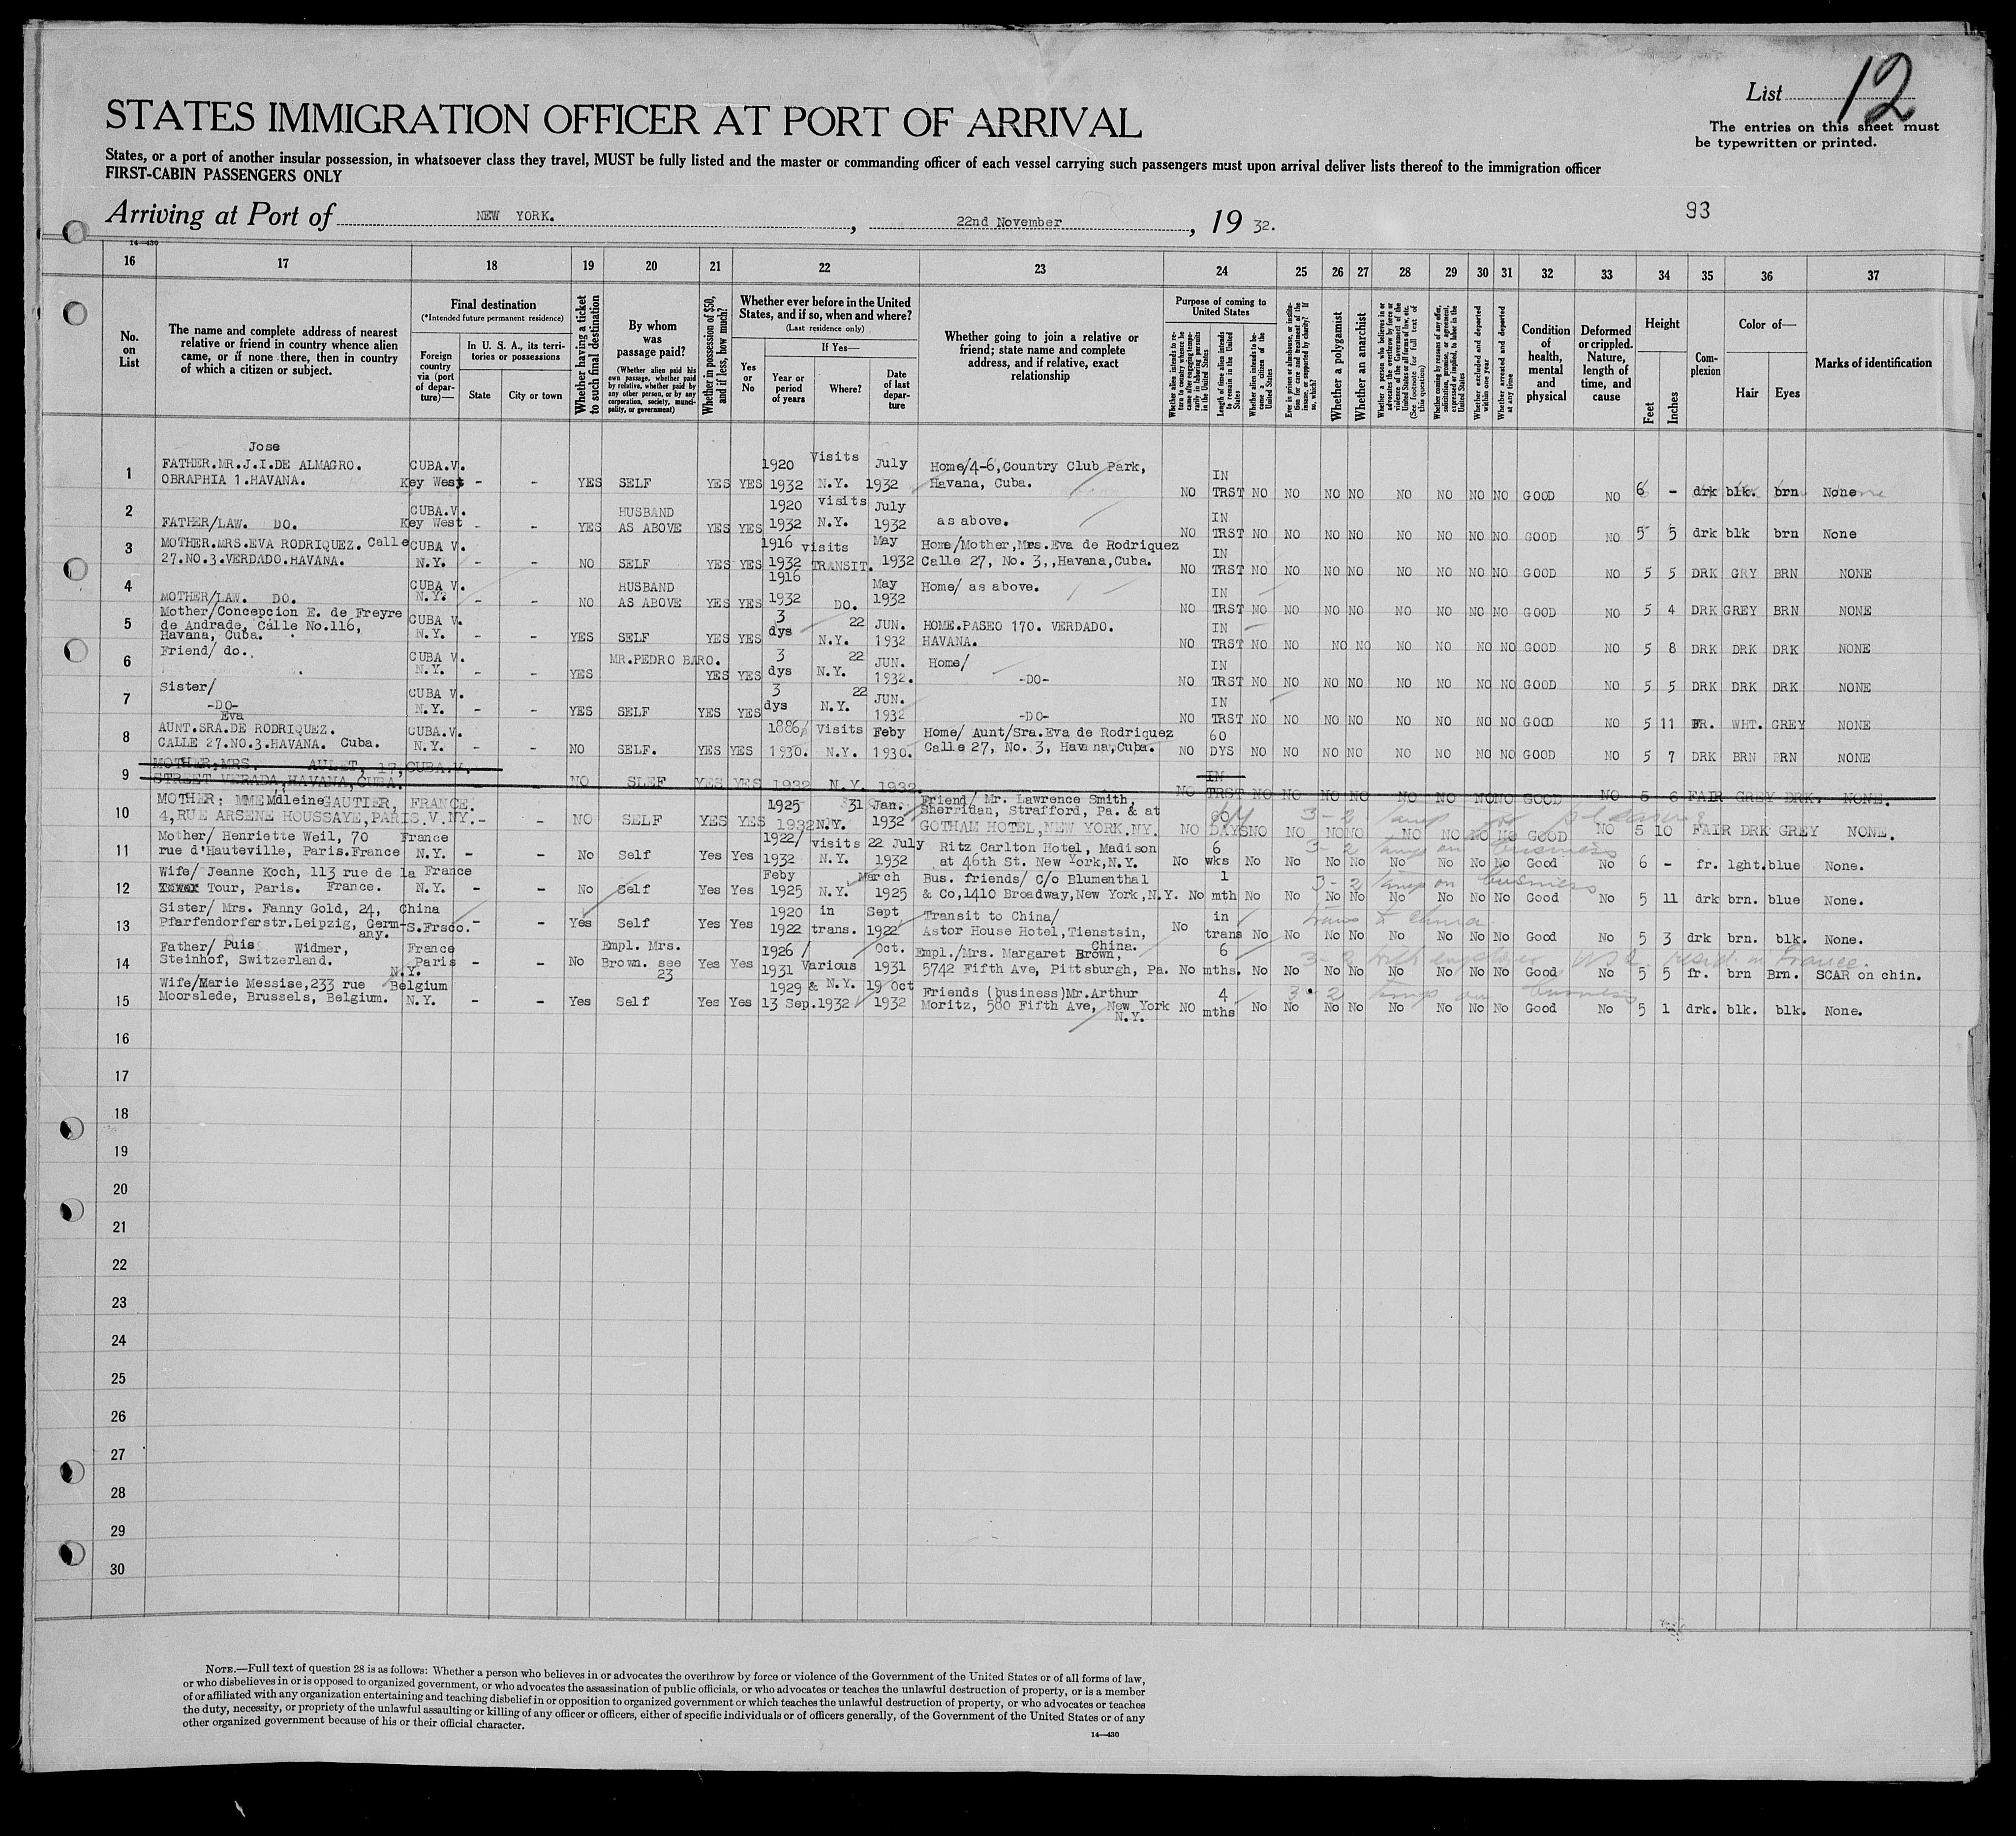 List 12
STATES IMMIGRATION OFFICER AT PORT OF ARRIVAL
The entries on this sheet must
be typewritten or printed.
States, or a port of another insular possession, in whatsoever class they travel, MUST be fully listed and the master or commanding officer of each vessel carrying such passengers must upon arrival deliver lists thereof to the immigration officer
FIRST-CABIN PASSENGERS ONLY
93
Arriving at Port of NEW YORK. , 22nd November , 19 32.
14—430
16 17 18 19 20 21 22 23 24 25 26 27 28 29 30 31 32 33 34 35 36 37
No. on List
The name and complete address of nearest relative or friend in country whence alien came, or if none there, then in country of which a citizen or subject.
Final destination
(*Intended future permanent residence)
Foreign country via (port of departure)—
In U. S. A., its territories or possessions
State City or town
Whether having a ticket to such final destination
By whom was passage paid?
(Whether alien paid his own passage, whether paid by relative, whether paid by any other person, or by any corporation, society, municipality, or government)
Whether in possession of $50, and if less, how much?
Whether ever before in the United States, and if so, when and where?
(Last residence only)
Yes or No
If Yes—
Year or period of years Where? Date of last departure
Whether going to join a relative or friend; state name and complete address, and if relative, exact relationship
Purpose of coming to United States
Whether alien intends to return to country whence he came after engaging temporarily in laboring pursuits in the United States
Length of time alien intends to remain in the United States
Whether alien intends to become a citizen of the United States
Ever in prison or almshouse, or institution for care and treatment of the insane, or supported by charity? If so, which?
Whether a polygamist
Whether an anarchist
Whether a person who believes in or advocates the overthrow by force or violence of the Government of the United States or all forms of law, etc. (See footnote for full text of this question)
Whether coming by reason of any offer, solicitation, promise, or agreement, expressed or implied, to labor in the United States
Whether excluded and deported within one year
Whether arrested and deported at any time
Condition of health, mental and physical
Deformed or crippled. Nature, length of time, and cause
Height
Feet Inches
Complexion
Color of—
Hair Eyes
Marks of identification
Jose
1 FATHER.MR.J.I.DE ALMAGRO. CUBA.V. 1920 Visits July Home/4-6,Country Club Park,
OBRAPHIA 1.HAVANA. Key West - - YES SELF YES YES 1932 N.Y. 1932 Havana, Cuba. NO IN TRST NO NO NO NO NO NO NO NO GOOD NO 6 - drk blk. brn None
2 CUBA.V. HUSBAND 1920 visits July
FATHER/LAW. DO. Key West - - YES AS ABOVE YES YES 1932 N.Y. 1932 as above. NO IN TRST NO NO NO NO NO NO NO NO GOOD NO 5 5 drk blk brn None
3 MOTHER.MRS.EVA RODRIQUEZ. Calle CUBA V. 1916 visits May Home/Mother,Mrs.Eva de Rodriquez
27.NO.3.VERDADO.HAVANA. N.Y. - - NO SELF YES YES 1932 TRANSIT. 1932 Calle 27, No. 3,,Havana,Cuba. NO IN TRST NO NO NO NO NO NO NO NO GOOD NO 5 5 DRK GRY BRN NONE
4 CUBA V. HUSBAND 1916 May Home/ as above.
MOTHER/LAW. DO. N.Y? - - NO AS ABOVE YES YES 1932 DO. 1932 NO IN TRST NO NO NO NO NO NO NO NO GOOD NO 5 4 DRK GREY BRN NONE
5 Mother/Concepcion E. de Freyre CUBA V. 3 22 JUN. HOME.PASEO 170. VERDADO.
de Andrade, Calle No.116, N.Y. - - YES SELF YES YES dys N.Y. 1932 HAVANA. NO IN TRST NO NO NO NO NO NO NO NO GOOD NO 5 8 DRK DRK DRK NONE
Havana, Cuba.
6 Friend/ do. CUBA V. MR.PEDRO BARO. 3 22 JUN. Home/
N.Y. - - YES YES YES dys N.Y. 1932. -DO- NO IN TRST NO NO NO NO NO NO NO NO GOOD NO 5 5 DRK DRK DRK NONE
7 Sister/ CUBA V. 3 22 JUN.
-DO- N.Y. - - YES SELF YES YES dys N.Y. 1932 -DO- NO IN TRST NO NO NO NO NO NO NO NO GOOD NO 5 11 FR. WHT. GREY NONE
Eva
8 AUNT.SRA.DE RODRIQUEZ. CUBA.V. 1886/ Visits Feby Home/ Aunt/Sra.Eva de Rodriquez
CALLE 27.NO.3.HAVANA. Cuba. N.Y. - - NO SELF. YES YES 1930. N.Y. 1930. Calle 27, No. 3, Havana,Cuba. NO 60 DYS NO NO NO NO NO NO NO NO GOOD NO 5 7 DRK BRN BRN NONE
9 MOTHER;MRS. AULET, 17,CUBA.V.
STREET VERADA,HAVANA,CUBA. NO SLEF YES YES 1932 N.Y. 1932. NO IN TRST NO NO NO NO NO NO NO NO GOOD NO 5 6 FAIR GREY DRK. NONE.
10 MOTHER; MME Mdleine GAUTIER, FRANCE. 1925 31 Jan. Friend/ Mr. Lawrence Smith,
4,RUE ARSENE HOUSSAYE,PARIS.V.NY. - - NO SELF YES YES 1932 N.Y. 1932 Sherridan, Strafford, Pa. & at
GOTHAM HOTEL,NEW YORK.NY. NO 60 DAYS NO NO NO NO NO NO NO NO GOOD NO 5 10 FAIR DRK GREY NONE.
3-2 temp for pleasure
11 Mother/ Henriette Weil, 70 France 1922/ visits 22 July Ritz Carlton Hotel, Madison
rue d'Hauteville, Paris.France N.Y. - - No Self Yes Yes 1932 N.Y. 1932 at 46th St. New York,N.Y. No 6 wks No No No No No No No No Good No 6 - fr. lght. blue None.
3-2 temp on business
12 Wife/ Jeanne Koch, 113 rue de la France Feby March Bus. friends/ C/o Blumenthal
Tour, Paris. France. N.Y. - - No Self Yes Yes 1925 N.Y. 1925 & Co,1410 Broadway,New York,N.Y. No 1 mth No No No No No No No No Good No 5 11 drk brn. blue None.
3-2 temp on business
13 Sister/ Mrs. Fanny Gold, 24, China 1920 in Sept Transit to China/
Pfarfendorferstr.Leipzig, Germany. S.Frsco. - - Yes Self Yes Yes 1922 trans. 1922 Astor House Hotel,Tienstsin, China. No in trans No No No No No No No No Good No 5 3 drk brn. blk. None.
trans to China
14 Father/ Puis Widmer, France Empl. Mrs. 1926 / Oct. Empl./Mrs. Margaret Brown,
Steinhof, Switzerland. Paris N.Y. - - No Brown. see 23 Yes Yes 1931 Various 1931 5742 Fifth Ave, Pittsburgh, Pa. No 6 mths. No No No No No No No No Good No 5 5 fr. brn Brn. SCAR on chin.
3-2 with employer resid. in France.
15 Wife/Marie Messise,233 rue Belgium 1929 & N.Y. 19 Oct Friends (business)Mr.Arthur
Moorslede, Brussels, Belgium. N.Y. - - Yes Self Yes Yes 13 Sep.1932 1932 Moritz, 580 Fifth Ave, New York N.Y. NO 4 mths No No No No No No No No Good No 5 1 drk. blk. blk. None.
3-2 temp on business
16
17
18
19
20
21
22
23
24
25
26
27
28
29
30
NOTE.—Full text of question 28 is as follows: Whether a person who believes in or advocates the overthrow by force or violence of the Government of the United States or of all forms of law,
or who disbelieves in or is opposed to organized government, or who advocates the assassination of public officials, or who advocates or teaches the unlawful destruction of property, or is a member
of or affiliated with any organization entertaining and teaching disbelief in or opposition to organized government or which teaches the unlawful destruction of property, or who advocates or teaches
the duty, necessity, or propriety of the unlawful assaulting or killing of any officer or officers, either of specific individuals or of officers generally, of the Government of the United States or of any
other organized government because of his or their official character.
14—430